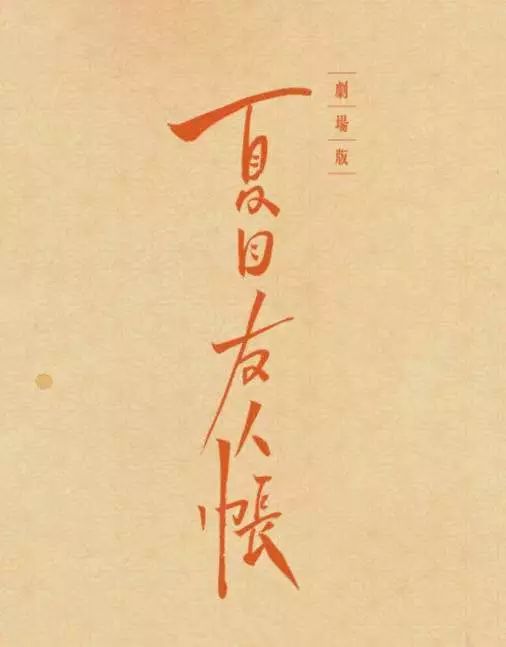 劇場版
夏目友人帳